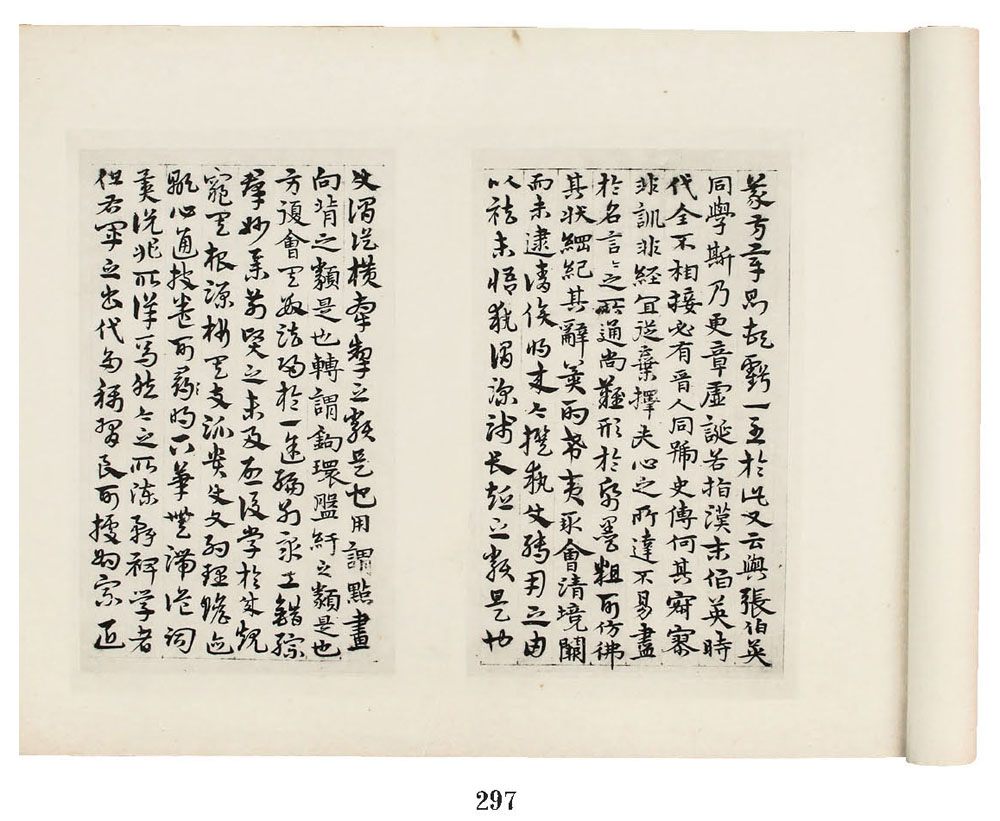 義方章則頓虧一至於此又云與張伯英
同學斯乃更章虛誕若指漢末伯英時
代全不相接必有晉人同號史傳何其寂寥
非訓非經宜從棄擇夫心之所達不易盡
於名言言之所通尚難形於紙墨粗可仿彿
其狀綱紀其辭冀酌希夷取會清境闕
而未逮請俟將來今撰執使轉用之由
以祛未悟執謂深淺長短之類是也
使謂縱橫牽掣之類是也用謂點畫
向背之類是也轉謂鉤環盤紆之類是也
方復會其數法歸於一途編列衆工錯綜
羣妙舉前賢之未及啓後學於成規
窺其根源析其支派貴使文約理贍迹
顯心通披卷可明下筆無滯詭詞
異說非所詳焉然今之所陳務裨學者
但右軍之書代多稱習良可據為宗匠
297